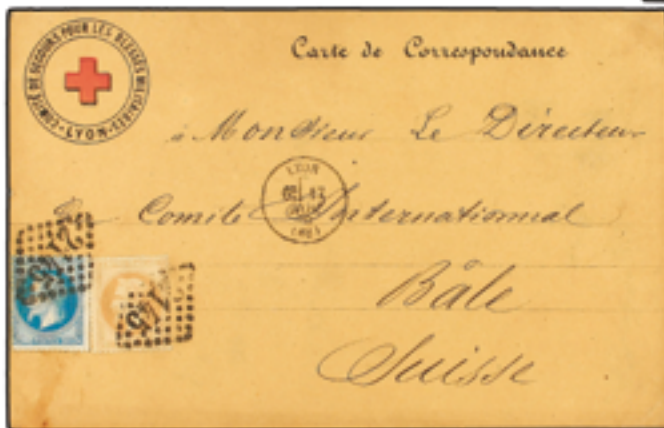 COMITÉ DE SECOURS POUR LES BLESSÉS MILITAIRES
LYON
Carte de Correspondance
à Monsieur Le Directeur
Comité International
Bâle
Suisse
LYON
(68)
2145
145